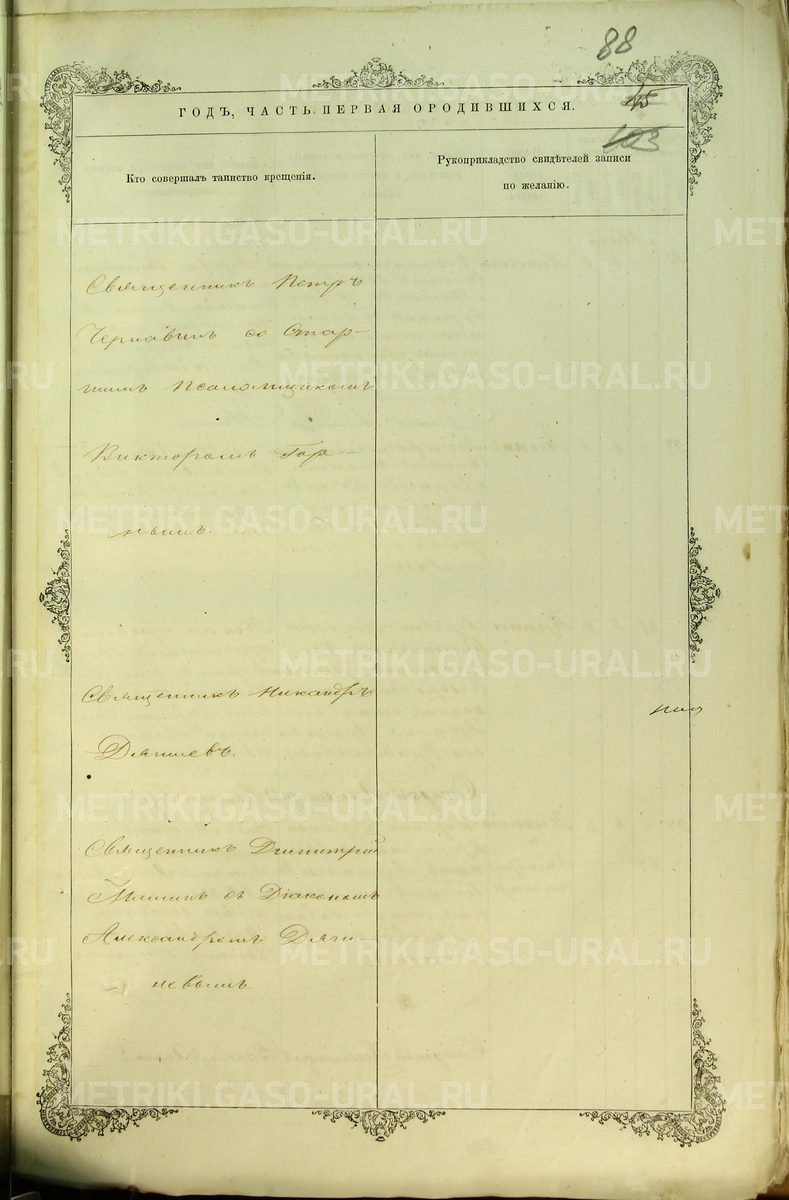 88
45
103
ГОДЪ, ЧАСТЬ ПЕРВАЯ ОРОДИВШИХСЯ.
Кто совершалъ таинство крещенія.
Рукоприкладство свидѣтелей записи
по желанію.
Священникъ Петръ
Чернавинъ со Стар-
шимъ Псаломщикомъ
Викторомъ Гор-
нымъ.
Священникъ Никандръ
Дягилевъ.
Священникъ Димитрій
съ Діакономъ
Александромъ Дяги-
левымъ
METRIKI.GASO-URAL.RU